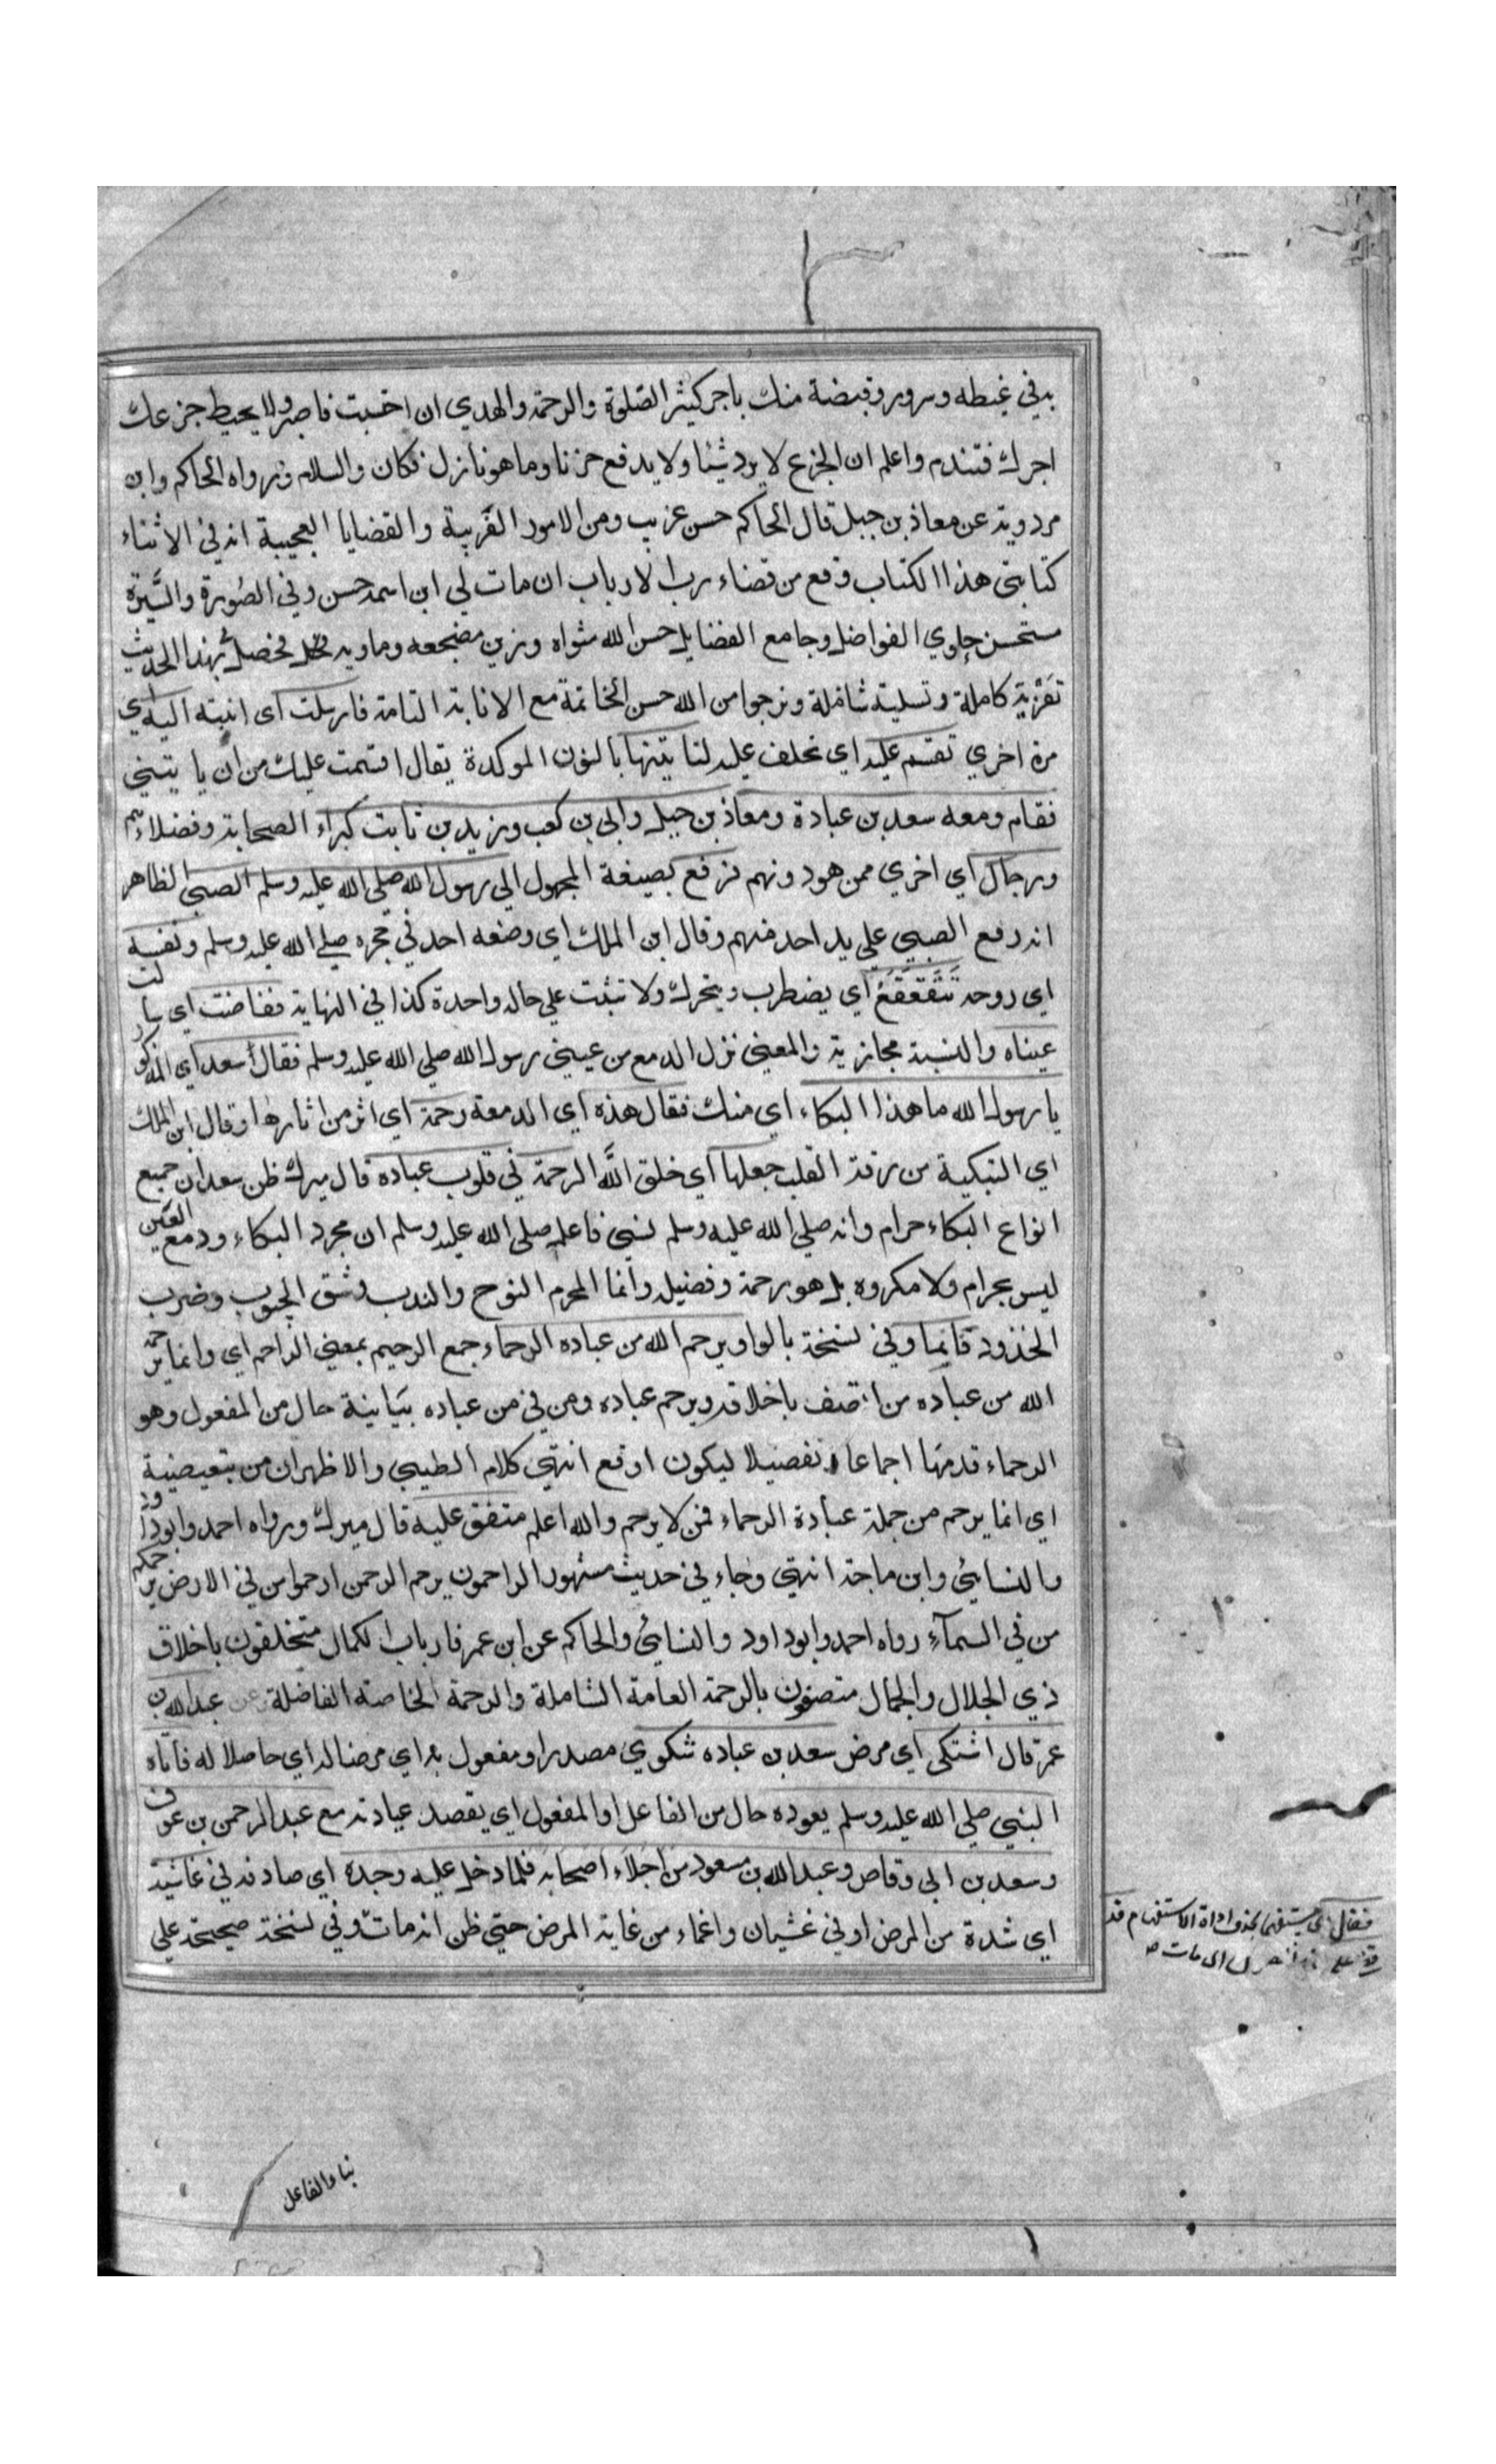 به في غبطه وسرور وقبضة منك باجر كثير الصلوة والرحمة والهدي ان احتسبت فاصبر ولا يحيط جزعك
اجرك فتندم واعلم ان الجزع لا يرد شيئا ولا يدفع حزنا وما هو نازل فكان والسلام ورواه الحاكم وابن
مردويه عن معاذ بن جبل قال الحاكم حسن غريب ومن الامور الغريبة والقضايا العجيبة انه في الاثناء
كتابتي هذا الكتاب وقع من قضاء رب الارباب ان مات لي ابن اسمه حسن وفي الصورة والسيرة
مستحسن حاوي الفواضل وجامع الفضايل حسن الله مثواه وزين مضجعه وماويه فحصل بهذا الحديث
تعزية كاملة وتسلية شاملة ونرجوا من الله حسن الخاتمة مع الانابة التامة فارسلت اي ابنته اليه اي
مرة اخري تقسم عليه اي تحلف عليه لنا يتينها بالنون الموكدة يقال اقسمت عليك من ان يا يتيني
فقام ومعه سعد بن عبادة ومعاذ بن جبل وابي بن كعب وزيد بن ثابت كبراء الصحابة وفضلاءهم
ورجال اي اخري ممن هو دونهم فرفع بصيغة المجهول الي رسول الله صلي الله عليه وسلم الصبي الظاهر
انه رفع الصبي علي يد احد منهم وقال ابن الملك اي وضعه احد في حجره صلي الله عليه وسلم ونفسه
اي روحه تَتَقَعْقَعُ اي يضطرب ويتحرك ولا تثبت علي حاله واحدة كذا في النهاية ففاضت اي سالت
عيناه والنسبة مجازية والمعني نزل الدمع من عيني رسول الله صلي الله عليه وسلم فقال سعد اي المذكور
يا رسول الله ما هذا البكاء اي منك فقال هذه اي الدمعة رحمة اي اثر من اثارها وقال ابن الملك
اي التبكية من رقة القلب جعلها اي خلق اللَّه الرحمة في قلوب عباده قال ميرك ظن سعد ان جميع
انواع البكاء حرام وانه صلي الله عليه وسلم نسي فاعلمه صلي الله عليه وسلم ان مجرد البكاء ودمع العين
ليس بحرام ولا مكروه بل هو رحمة وفضيلة وانما المحرم النوح والندب وشق الجيوب وضرب
الخذود فانما وفي نسخة بالواو يرحم الله من عباده الرحماء جمع الرحيم بمعني الراحم اي وانما يرحم
الله من عباده من اتصف باخلاقه ويرحم عباده ومن في من عباده بيانية حال من المفعول وهو
الرحماء قدمها اجماعا وتفصيلا ليكون اوقع انتهي كلام الطيبي والاظهر ان من تبعيضية
اي انما يرحم من جملة عبادة الرحماء فمن لا يرحم والله اعلم متفق عليه قال ميرك ورواه احمد وابو داود
والنسايئ وابن ماجة انتهي وجاء في حديث مشهور الراحمون يرحم الرحمن ارحموا من في الارض يرحمكم
من في السمآء رواه احمد وابو داود والنسايئ والحاكم عن ابن عمر فارباب الكمال متخلقون باخلاق
ذي الجلال والجمال متصفون بالرحمة العامة الشاملة والرحمة الخاصة الفاضلة عن عبد الله بن
عمر قال اشتكي اي مرض سعد بن عباده شكوي مصدر او مفعول به اي مرضا له اي حاصلا له فاتاه
النبي صلي الله عليه وسلم يعوده حال من الفاعل او المفعول اي يقصد عيادته مع عبد الرحمن بن عوف
وسعد بن ابي وقاص وعبد الله بن مسعود من اجلاء اصحابه فلما دخل عليه وجده اي صادفه في غاشية
اي شدة من المرض او في غشيان واغماء من غاية المرض حتي ظن انه مات وفي نسخة صحيحة علي
فقال اي مستفهما بحذف اداة الاستفهام قد
بناء والفاعل